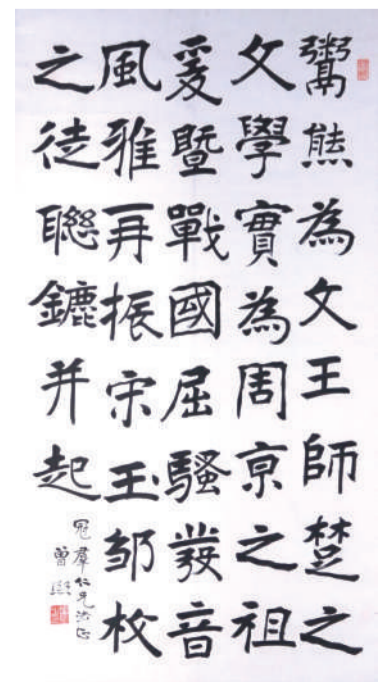 鬻熊為文王師楚之
文學實為周京之祖
爰暨戰國屈騷發音
風雅再振宋玉鄒枚
之徒聯鑣并起
冠羣仁兄法正
曾熙